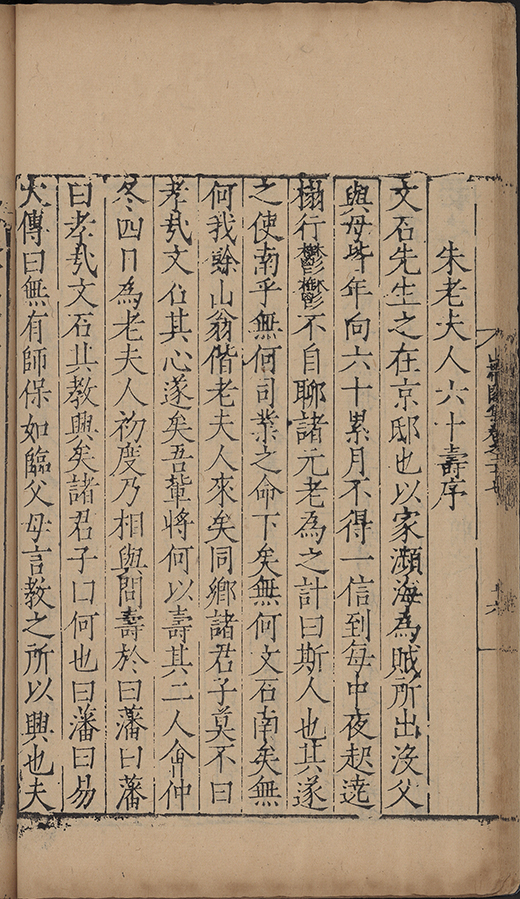 山帶閣集卷之二十七
十六
朱老夫人六十壽序
文石先生之在京邸也以家瀕海為賊所出沒父
與母皆年向六十累月不得一信到每中夜起遶
榻行鬱鬱不自聊諸元老為之計曰斯人也其遂
之使南乎無何司業之命下矣無何文石南矣無
何我餘山翁偕老夫人來矣同鄉諸君子莫不曰
孝哉文石其心遂矣吾輩將何以壽其二人會仲
冬四日為老夫人初度乃相與問壽於曰藩曰藩
曰孝哉文石其教興矣諸君子曰何也曰藩曰易
大傳曰無有師保如臨父母言教之所以興也夫